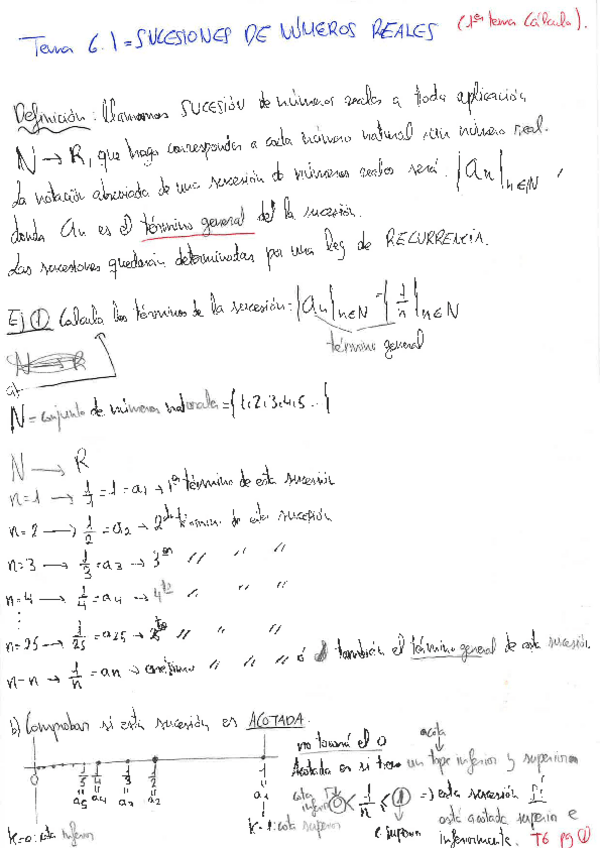 Tema 6.1 = SUCESIONES DE NÚMEROS REALES (1er tema Cálculo).
Definición: Llamamos SUCESIÓN de números reales a toda aplicación
N → R, que haga corresponder a cada número natural un número real.
La notación abreviada de una sucesión de números reales será {an}n∈N,
donde an es el término general de la sucesión.
Las sucesiones quedarán determinadas por una ley de RECURRENCIA.
Ej ① Calcula los términos de la sucesión: {an}n∈N = {1/n}n∈N
término general
a)
N = conjunto de números naturales = {1,2,3,4,5...}
N → R
n=1 → 1/1 = 1 = a1 → 1er término de esta sucesión
n=2 → 1/2 = a2 → 2do término de esta sucesión
n=3 → 1/3 = a3 → 3er // // //
n=4 → 1/4 = a4 → 4to // // //
⋮
n=25 → 1/25 = a25 → // // //
n=n → 1/n = an → enésimo // // // ó también el término general de esta sucesión.
b) Comprobar si esta sucesión es ACOTADA.
no tomará el 0
acota
Acotada es si tiene un tope inferior y superior
0 1/5 1/4 1/3 1/2 1
a5 a4 a3 a2 a1
cota inferior 0 < 1/n ≤ 1 ⇒ esta sucesión sí
está acotada superior e
inferiormente.
c. superior
K=0: cota inferior
K=1: cota superior
T6 pg ①